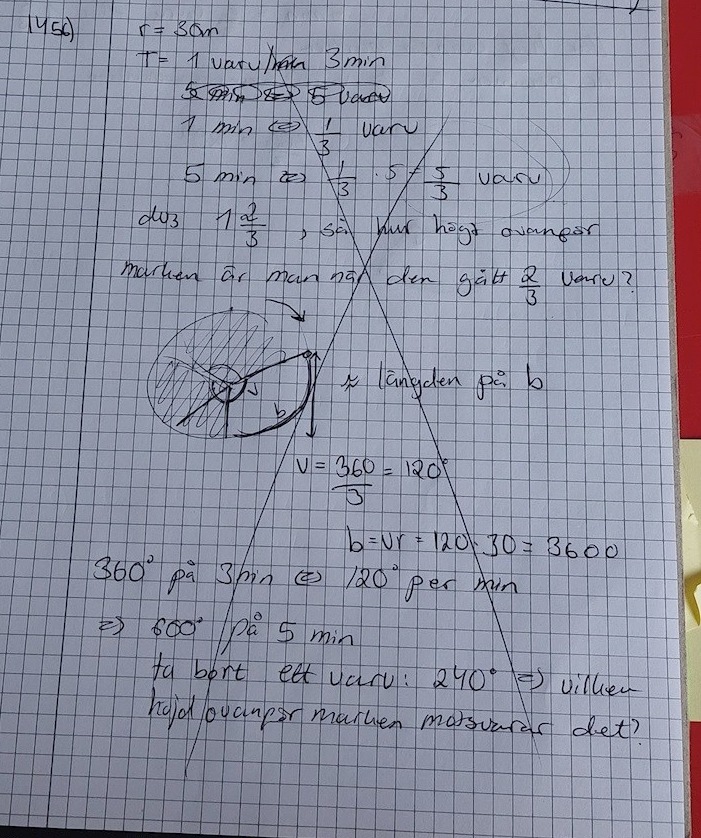 1456) r = 30m
T = 1 varv/ 3 min
5 min ⇔ 5 varv
1 min ⇔ 1/3 varv
5 min ⇔ 1/3 · 5 = 5/3 varv
dvs 1 2/3 , så hur högt ovanför
marken är man när den gått 2/3 varv?
≈ längden på b
b
v
v = 360/3 = 120°
b = vr = 120 · 30 = 3600
360° på 3min ⇔ 120° per min
⇒ 600° på 5 min
ta bort ett varv: 240° ⇒ vilken
höjd ovanför marken motsvarar det?